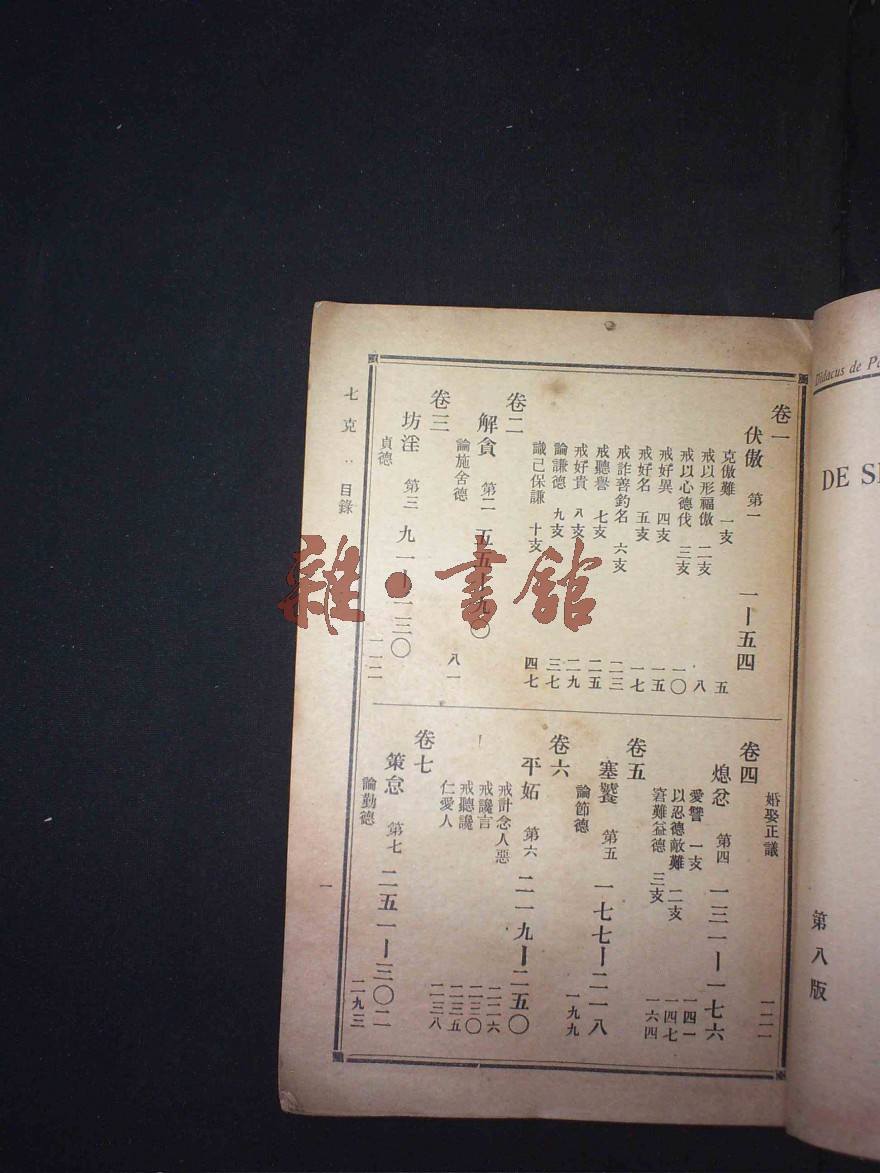 卷一
伏傲 第一 一—五四
克傲難 一支 五
戒以形福傲 二支 八
戒以心德伐 三支 一〇
戒好異 四支 一五
戒好名 五支 一七
戒詐善釣名 六支 二三
戒聽譽 七支 二五
戒好貴 八支 二九
論謙德 九支 三七
識己保謙 十支 四七
卷二
解貪 第二 五五—九〇
論施舍德 八一
卷三
坊淫 第三 九一—一三〇
貞德 一一二
婚娶正議 一二一
卷四
熄忿 第四 一三一—一七六
愛讐 一支 一四一
以忍德敵難 二支 一四七
窘難益德 三支 一六四
卷五
塞饕 第五 一七七—二一八
論節德 一九九
卷六
平妬 第六 二一九—二五〇
戒計念人惡 二二六
戒讒言 二三〇
戒聽讒 二三五
仁愛人 二三八
卷七
策怠 第七 二五一—三〇二
論勤德 二九三
七克：目錄
一
雜·書館
Didacus de Pa
DE SE
第八版